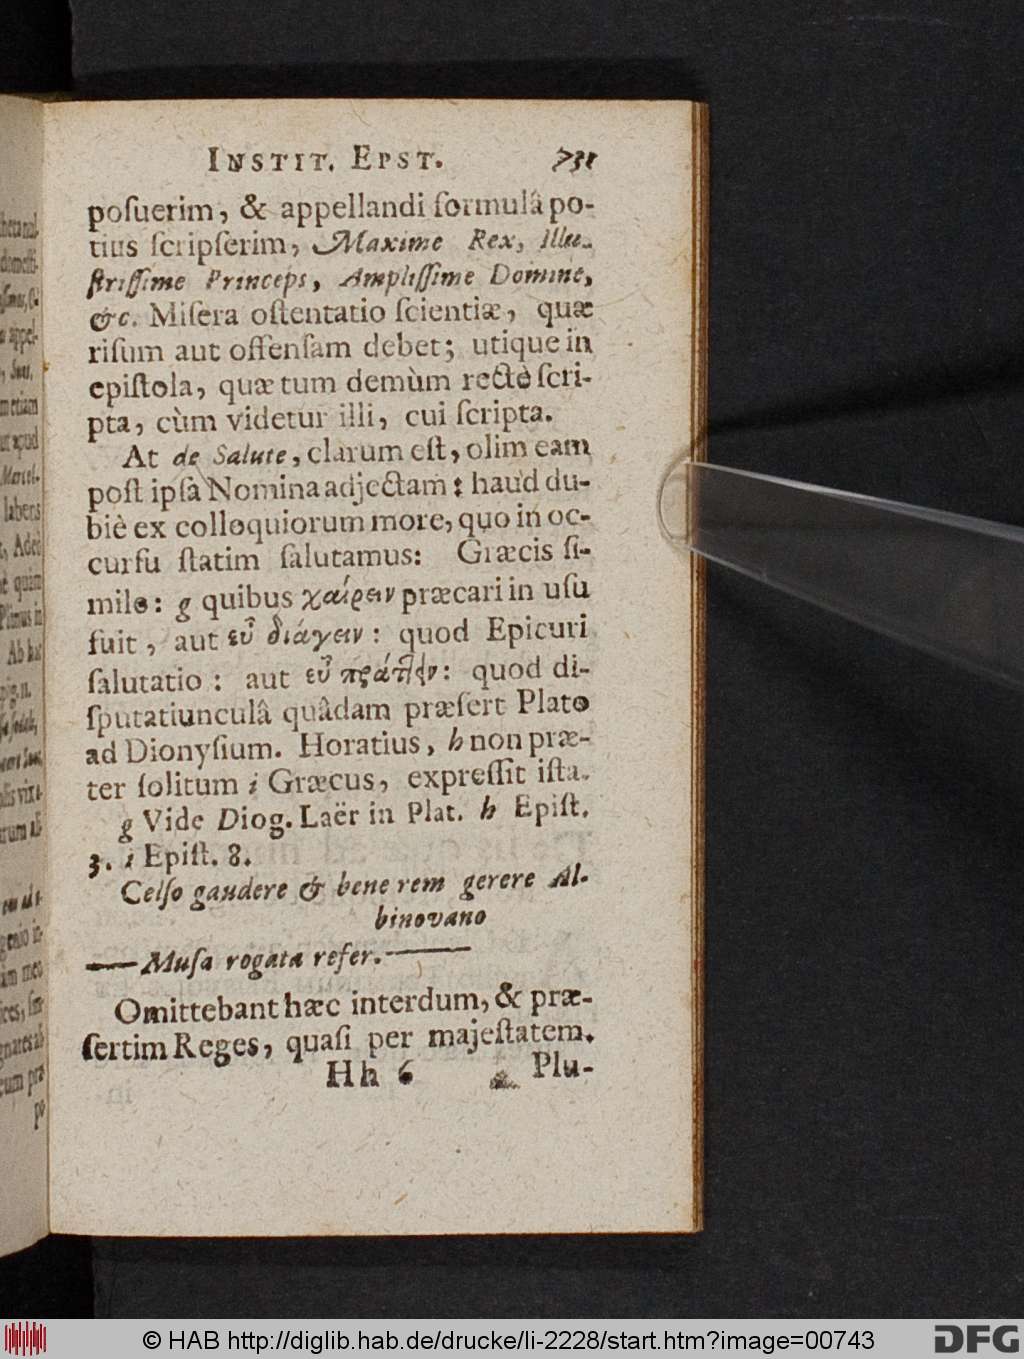 INSTIT. EPST. 731
posuerim, & appellandi formulâ po-
tius scripserim, Maxime Rex, Illu-
strissime Princeps, Amplissime Domine,
&c. Misera ostentatio scientiæ, quæ
risum aut offensam debet; utique in
epistola, quæ tum demùm rectè scri-
pta, cùm videtur illi, cui scripta.
At de Salute, clarum est, olim eam
post ipsa Nomina adjectam: haud du-
biè ex colloquiorum more, quo in oc-
cursu statim salutamus: Græcis si-
mile: g quibus χαίρειν præcari in usu
fuit, aut εὖ διάγειν: quod Epicuri
salutatio: aut εὖ πράττειν: quod di-
sputatiunculâ quâdam præfert Plato
ad Dionysium. Horatius, h non præ-
ter solitum i Græcus, expressit ista.
g Vide Diog. Laër in Plat. h Epist.
3. i Epist. 8.
Celso gaudere & bene rem gerere Al-
binovano
—Musa rogata refer.—
Omittebant hæc interdum, & præ-
sertim Reges, quasi per majestatem.
Hh 6 Plu-
© HAB http://diglib.hab.de/drucke/li-2228/start.htm?image=00743 DFG